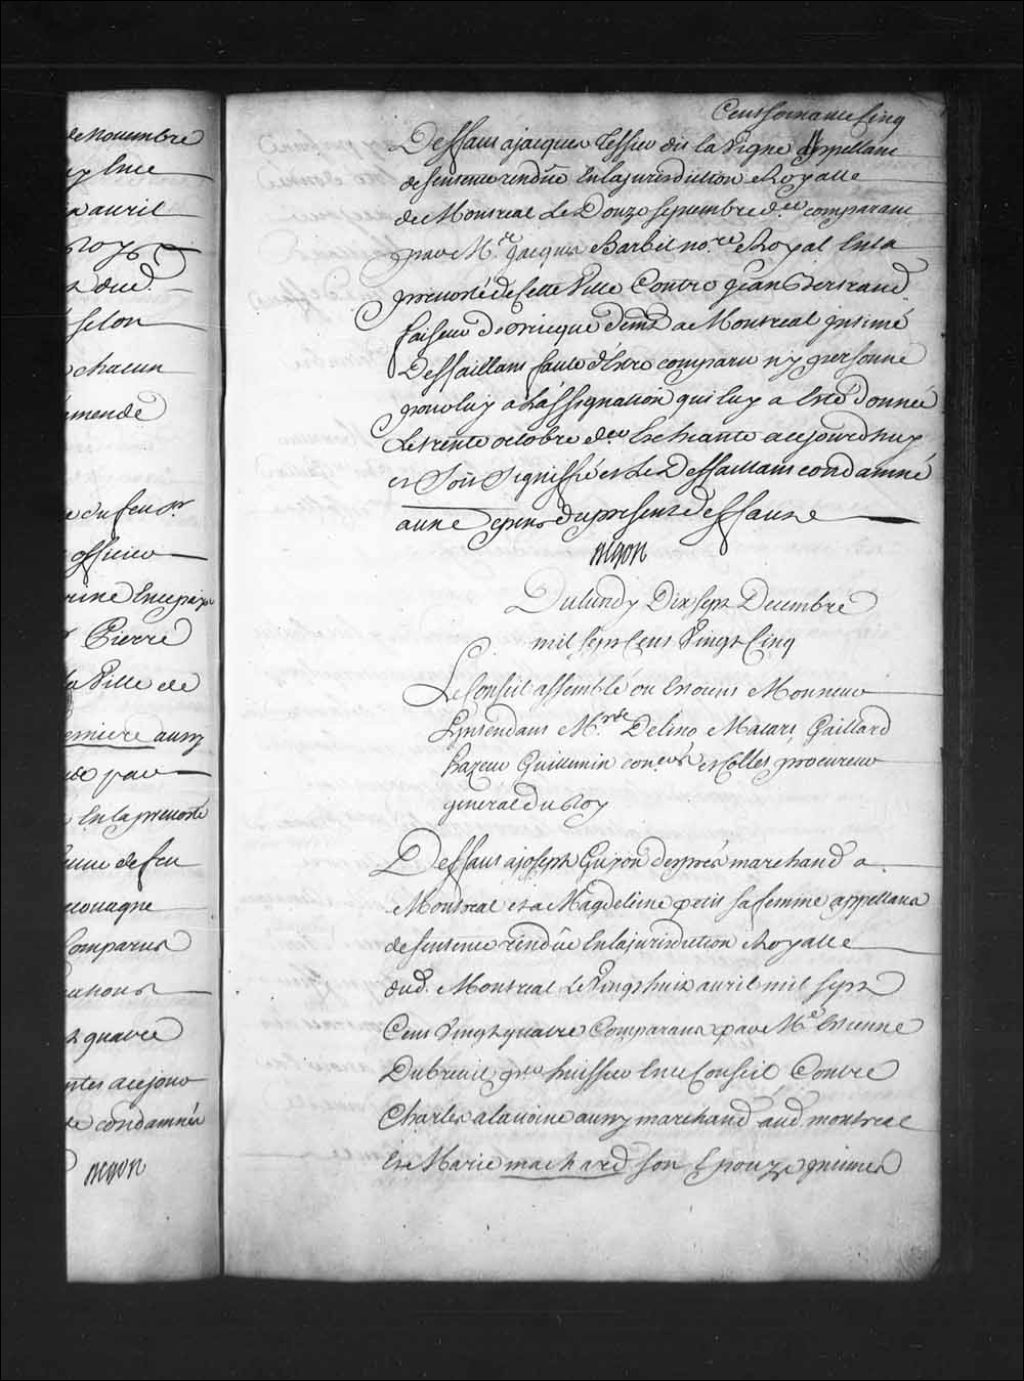 de Novembre
en avril
Roy
selon
chacun
amende
officier
Pierre
la Ville de
premiere aussy
par
En la prevosté
comparus
quatre
condamnée
Begon
Cent soixante Cinq
Deffaut a jacques Tessier dit la Vigne appellant
de sentence rendüe En la jurisdiction Royalle
de Montreal Le Douze septembre d.er comparant
par M.e Jacques Barbel no.re Royal En la
prevosté de Cette Ville Contre jean Bertrand
faiseur de bricque dem.t a Montreal Intimé
Deffaillant faute d'Estre comparu ny personne
pour luy a L'assignation qui luy a Esté donnée
Le trente octobre d.er Escheante a cejourdhuy
et Soit Signiffié et Le Deffaillant condamné
aux depens du present deffaut
Begon
Du lundy Dix sept Decembre
mil sept Cent Vingt Cinq
Le Conseil assemblé ou Estoient Monsieur
L'Intendant M.rs Delino Macart Gaillard
hazeur Guillemin con.ers et Collet procureur
general du Roy
Deffaut a joseph Guyon després marchand a
Montreal et a Magdeleine petit sa femme appellans
de sentence rendüe En la jurisdiction Royalle
dud. Montreal Le Vingt huit avril mil sept
Cent Vingt quatre Comparans par M.e Estienne
Dubreuil pr. huissier En ce Conseil Contre
Charles alavoine aussy marchand aud. montreal
Et Marie machard son Epouze Intimés